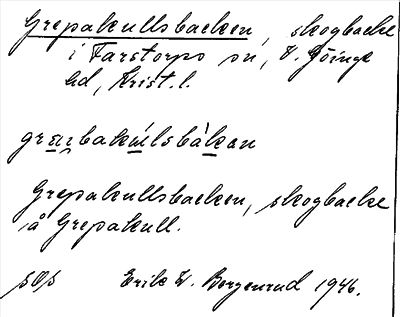 Grepakullsbacken, skogbacke
i Farstorps sn, V. Göinge
hd, Krist. l.
Grepakullsbacken, skogbacke
å Grepakull.
Erik W. Bergenrud 1946.